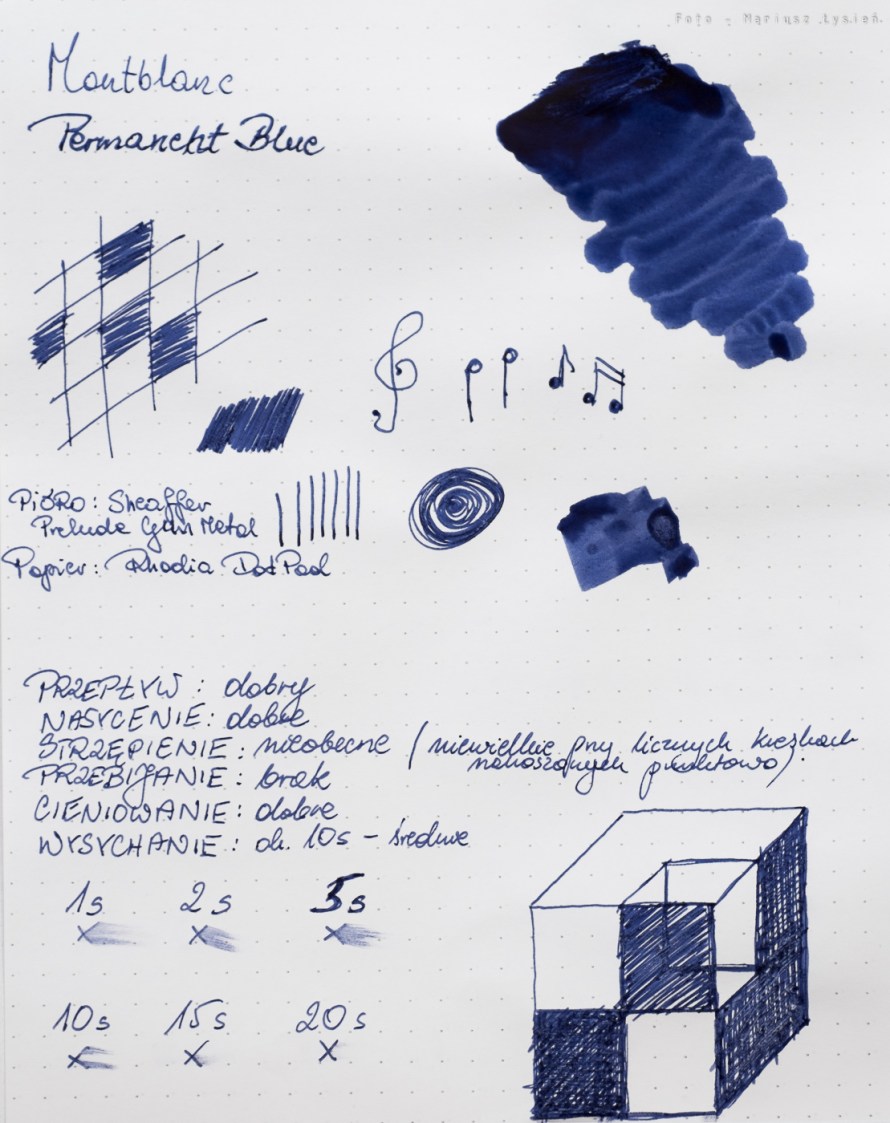 Foto - Mariusz Łysień.
Montblanc
Permanent Blue
PióRO: Sheaffer
Prelude Gun Metal
Papier: Rhodia DotPad
PRZEPŁYW: dobry
NASYCENIE: dobre
STRZĘPIENIE: nieobecne (niewielkie przy licznych kreskach
nanoszonych punktowo).
PRZEBIJANIE: brak
CIENIOWANIE: dobre
WYSYCHANIE: ok. 10s - średnie
1s 2s 5s
10s 15s 20s